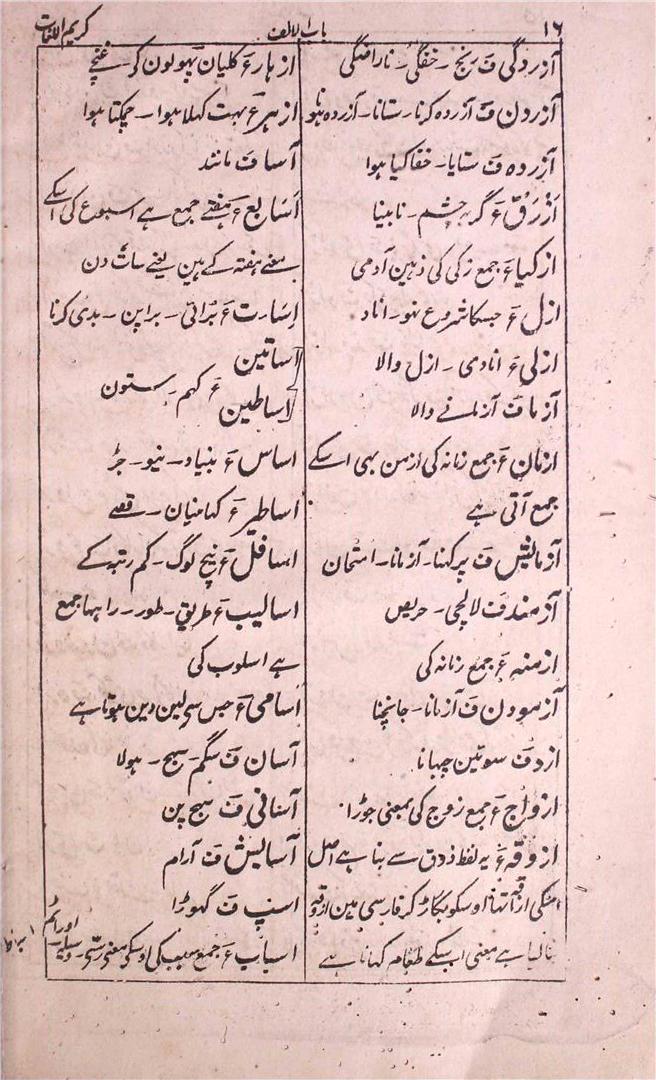 ۱۶
باب الالف
کریم اللغات
آزردگی ف رنج ۔ خفگی ۔ ناراضگی
آزردن ف آزردہ کرنا ۔ ستانا ۔ آزردہ ہونا
آزردہ ف ستایا ۔ خفا کیا ہوا
اَزْرَقْ ع گربہ چشم ۔ نابینا
ازکیا ع جمع زکی کی ذہین آدمی
ازل ع جسکا شروع نہو ۔ اناد
ازلی ع انادی ۔ ازل والا
آزما ف آزمانے والا
ازمان ع جمع زمانہ کی ازمن بھی اسکے
جمع آتی ہے
آزمایش ف پرکہنا ۔ آزمانا ۔ امتحان
آزمند ف لالچی ۔ حریص
ازمنہ ع جمع زمانہ کی
آزمودن ف آزمانا ۔ جانچنا
ازد ف سوئین چبھانا
ازواج ع جمع زوج کی بمعنی جوڑا
ازوقہ ع یہ لفظ ذوق سے بنا ہے اصل
اسکی ازقا تھا اوسکو بگاڑ کر فارسی مین ازوقہ
بنا لیا ہے معنی اسکے طعام کہانا ہے
ازہار ع کلیان پھولون کے غنچے
ازہر ع بہت کھلا ہوا ۔ چمکتا ہوا
آسا ف مانند
اَسَابِع ع ہفتے جمع ہے اسبوع کی اسکے
معنے ہفتہ کے ہین یعنے سات دن
اِسَارت ع بُرائی ۔ براپن ۔ بدی کرنا
اساتین
اساطین ع کہم ۔ ستون
اساس ع بنیاد ۔ نیو ۔ جڑ
اساطیر ع کہانیان ۔ قصے
اسافل ع نیچ لوگ ۔ کم رتبہ کے
اسالیب ع طریق ۔ طور ۔ راہہا جمع
ہے اسلوب کی
اَسامی ع جس سے لین دین ہوتا ہے
آسان ف سگم ۔ سہج ۔ ہولا
آسانی ف سہج پن
آسایش ف آرام
اسپ ف گھوڑا
اسباب ع جمع سبب کی اوسکی معنی رسّی ۔ وسیلہ ۔
اور اُم